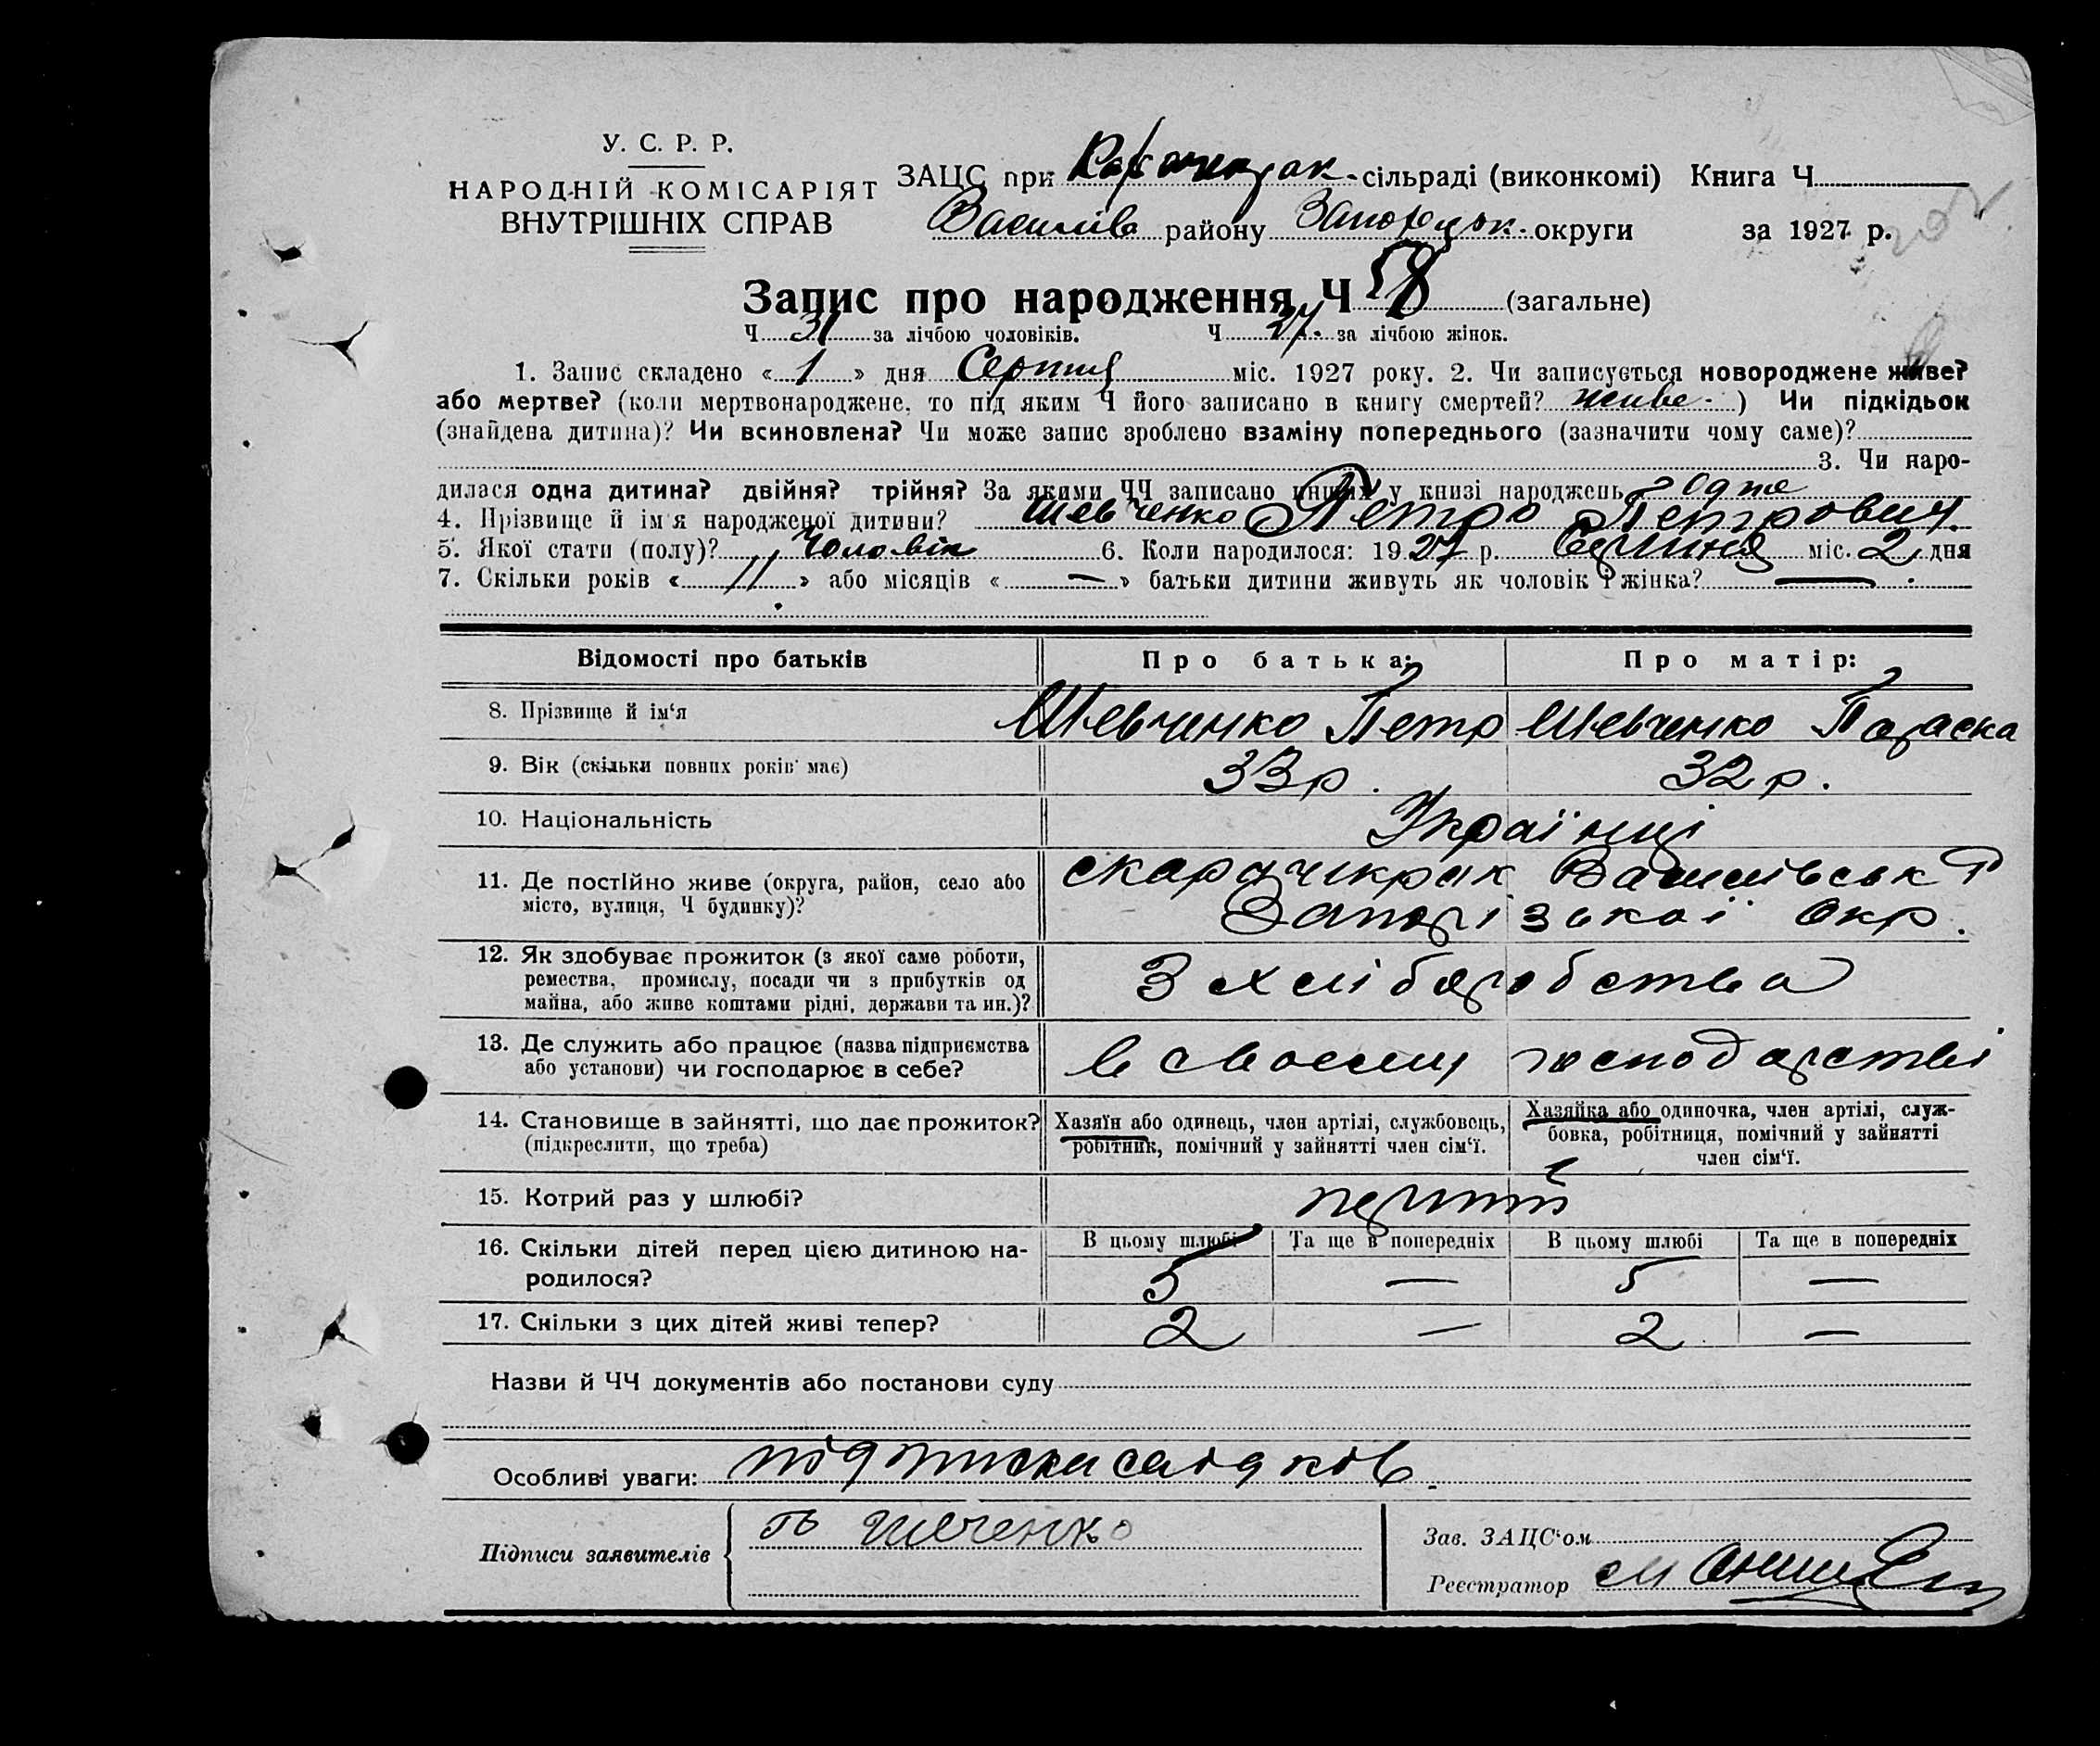 У. С. Р. Р.
НАРОДНІЙ КОМІСАРІЯТ
ВНУТРІШНІХ СПРАВ
ЗАЦС при Карачекрак. сільраді (виконкомі) Книга Ч
Василів району Запорізьк. округи за 1927 р.
Запис про народження Ч 58 (загальне)
Ч 31 за лічбою чоловіків. Ч 27 за лічбою жінок.
1. Запис складено « 1 » дня Серпня міс. 1927 року. 2. Чи записується новороджене живе?
або мертве? (коли мертвонароджене, то під яким Ч його записано в книгу смертей? живе ) Чи підкідьок
(знайдена дитина)? Чи всиновлена? Чи може запис зроблено взаміну попереднього (зазначити чому саме)?
3. Чи наро-
дилася одна дитина? двійня? трійня? За якими ЧЧ записано инших у книзі народжень?
4. Прізвище й ім'я народженої дитини? Шевченко Петро Петрович
5. Якої стати (полу)? Чоловік 6. Коли народилося: 1927 р. Серпня міс. 2 дня
7. Скільки років « 11 » або місяців « — » батьки дитини живуть як чоловік й жінка? —
Відомості про батьків Про батька: Про матір:
8. Прізвище й ім'я Шевченко Петр Шевченко Параска
9. Вік (скільки повних років має) 33 р. 32 р.
10. Національність Українці
11. Де постійно живе (округа, район, село або
місто, вулиця, Ч будинку)?
с карачикрак Василівськ Р
Запорізької Окр.
12. Як здобуває прожиток (з якої саме роботи,
ремества, промислу, посади чи з прибутків од
майна, або живе коштами рідні, держави та ин.)?
З хліборобства
13. Де служить або працює (назва підприємства
або установи) чи господарює в себе?
в своему господарстві
14. Становище в зайнятті, що дає прожиток?
(підкреслити, що треба)
Хазяїн або одинець, член артілі, службовець,
робітник, помічний у зайнятті член сім'ї.
Хазяйка або одиночка, член артілі, служ-
бовка, робітниця, помічний у зайнятті
член сім'ї.
15. Котрий раз у шлюбі?
16. Скільки дітей перед цією дитиною на-
родилося?
В цьому шлюбі Та ще в попередніх В цьому шлюбі Та ще в попередніх
5 — 5 —
17. Скільки з цих дітей живі тепер? 2 — 2 —
Назви й ЧЧ документів або постанови суду
Особливі уваги: підписки свідків
Підписи заявителів
Зав. ЗАЦС'ом
Реєстратор